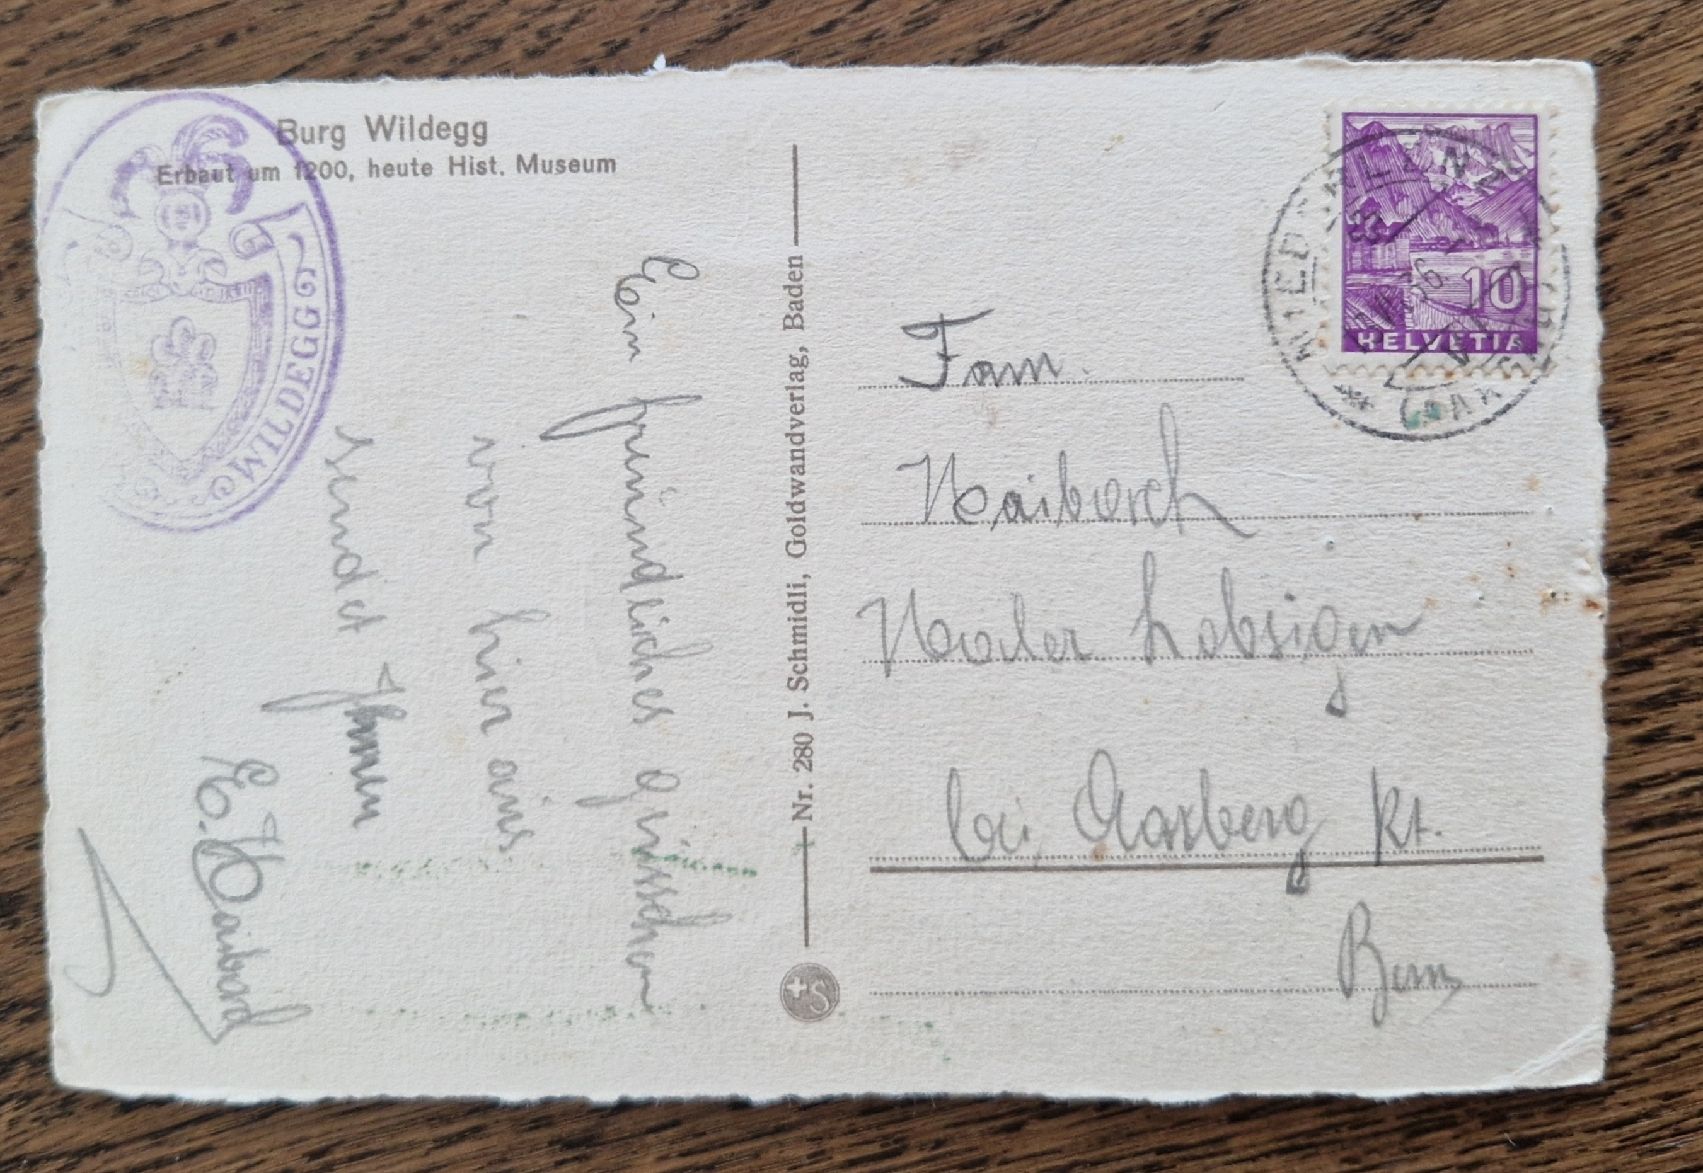 Burg Wildegg
Erbaut um 1200, heute Hist. Museum
WILDEGG
Ein freundliches grüsschen
von hier aus
sendet Ihnen
E.
Nr. 280 J. Schmidli, Goldwandverlag, Baden
S
10
HELVETIA
Fam.
Lobsigen
bei Aarberg Kt.
Bern